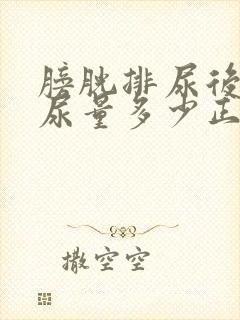 膀胱排尿後
尿量多少正
撒空空